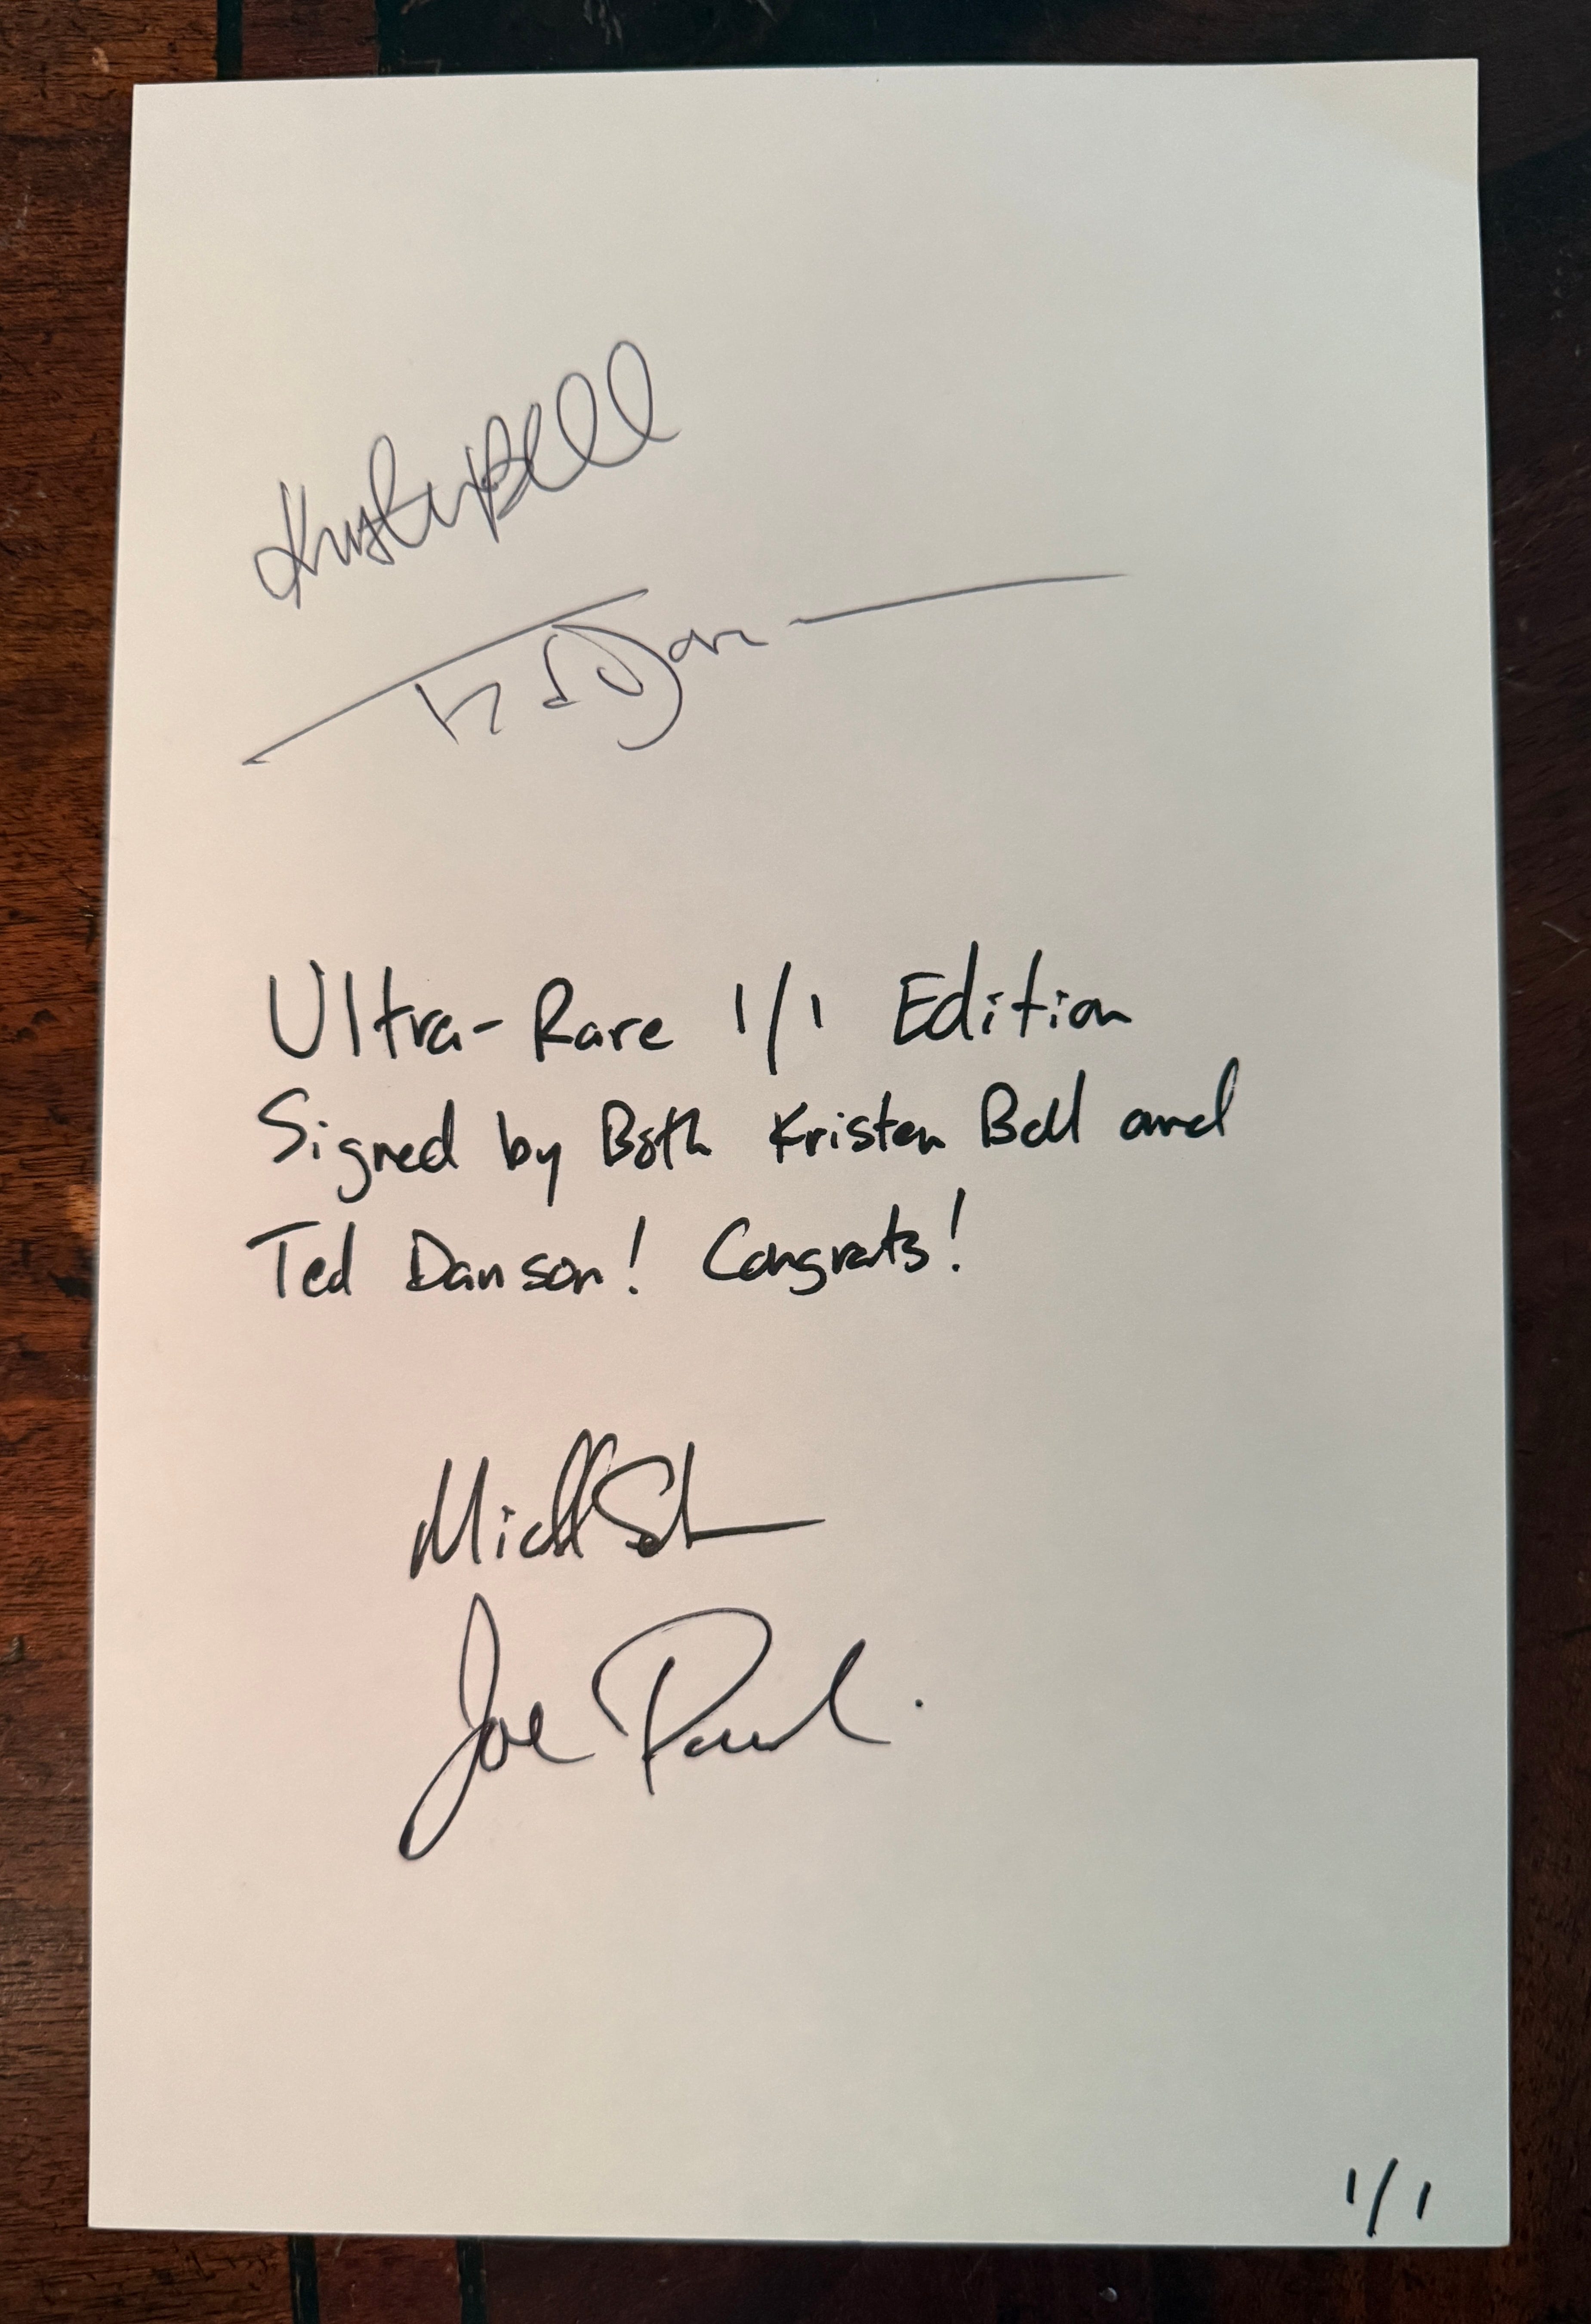 Kristen Bell
Ted Dan
Ultra-Rare 1/1 Edition
Signed by Both Kristen Bell and
Ted Danson! Congrats!
Joe
1/1